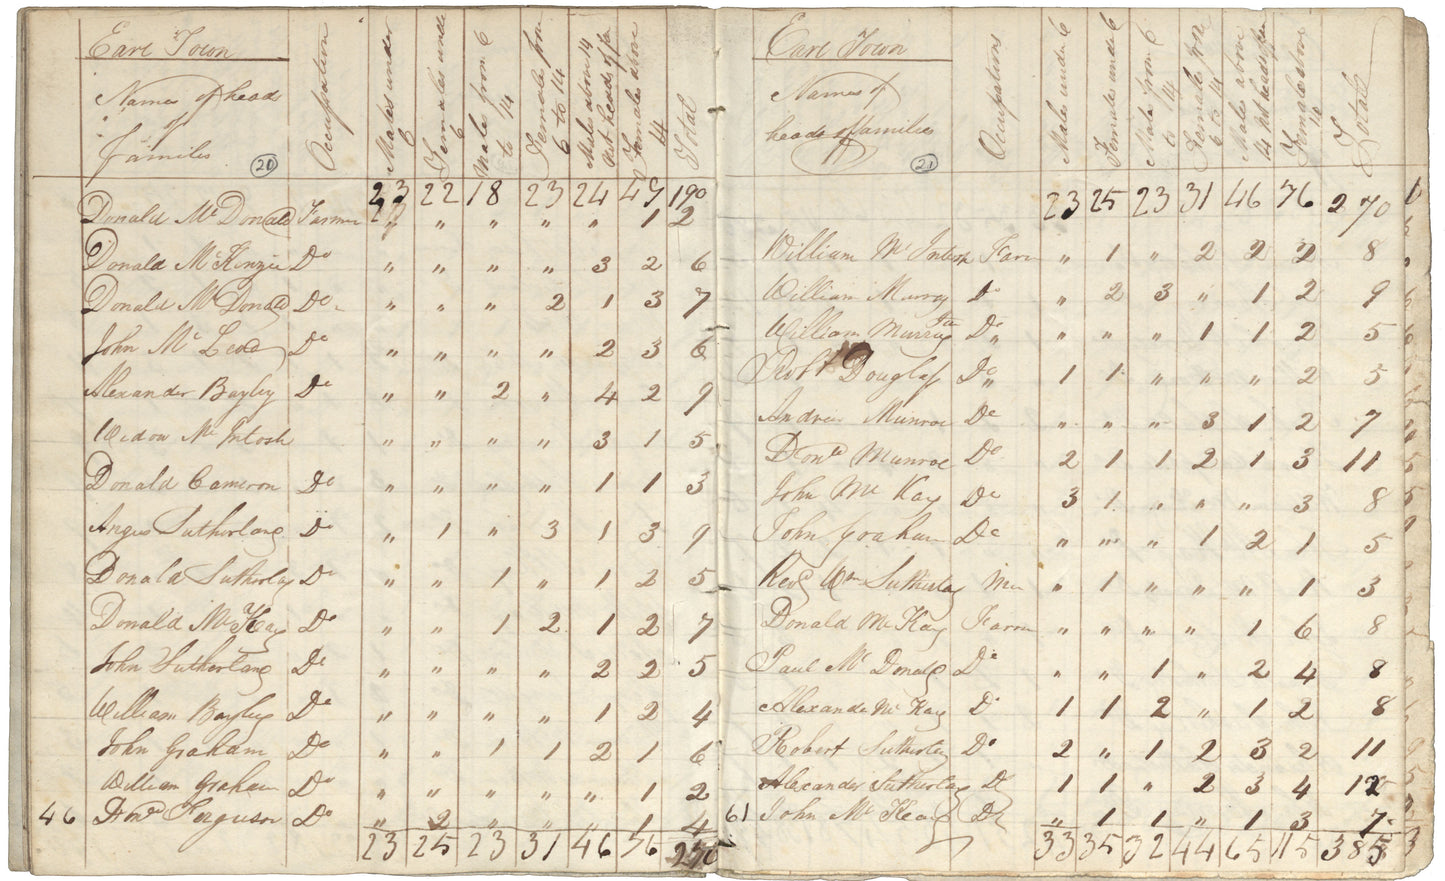 Earl Town
Names of heads
of
Families
20
Occupation
Males under 6
Females under 6
Males from 6 to 14
Female from 6 to 14
Males above 14 not heads of fam
Females above 14
Total
23 22 18 23 24 49 190
Donald McDonald Farmer " " " " 1 2
Donald McKinzie Do " " " " 3 2 6
Donald McDonald Do " " " 2 1 3 7
John McLeod Do " " " " 2 3 6
Alexander Bayley Do " " 2 " 4 2 9
Widow McIntosh " " " " 3 1 5
Donald Cameron Do " " " " 1 1 3
Angus Sutherland Do " 1 " 3 1 3 9
Donald Sutherlay Do " " 1 " 1 2 5
Donald McKay Do " " 1 2 1 2 7
John Sutherland Do " " " " 2 2 5
William Bayley Do " " " " 1 2 4
John Graham Do " " 1 1 2 1 6
William Graham Do " " " " " 1 2
46 Dond Ferguson Do " 2 " " " 1 4
23 25 23 31 46 76 270
Earl Town
Names of
heads of families
21
Occupations
Male under 6
Females under 6
Male from 6 to 14
Female from 6 to 14
Males above 14 not heads of fam
Females above 14
Totall
23 25 23 31 46 76 270
William McIntosh Farm " 1 " 2 2 2 8
William Murray Do " 2 3 " 1 2 9
William Murray Do " " " 1 1 2 5
Robt Douglass Do 1 1 " " " 2 5
Andrew Munroe Do " " " 3 1 2 7
Dond Munroe Do 2 1 1 2 1 3 11
John McKay Do 3 1 " " " 3 8
John Graham Do " " " 1 2 1 5
Revd Wm Sutherlay Min " 1 " " " 1 3
Donald McKay Farm " " " " 1 6 8
Paul McDonald Do " " 1 " 2 4 8
Alexande McKay Do 1 1 2 " 1 2 8
Robert Sutherlay Do 2 " 1 2 3 2 11
Alexander Sutherlay Do 1 1 " 2 3 4 12
61 John McKay Do " 1 1 " 1 3 7
33 35 32 44 65 115 385